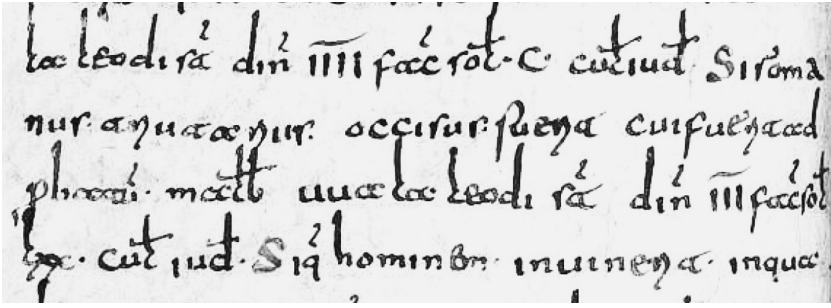 la leodi sā din̄ IIII fac̄ sol̄· C· cul̄ iud̄· Si roma
nus· triutarius· occisus· fuerit cui fuerit ad
phatī· malb̄ uuala leodi sā din̄ III fac̄ sol̄
lxx· cul̄ iud̄· Si q̄ hominem· inuinerit· inqua